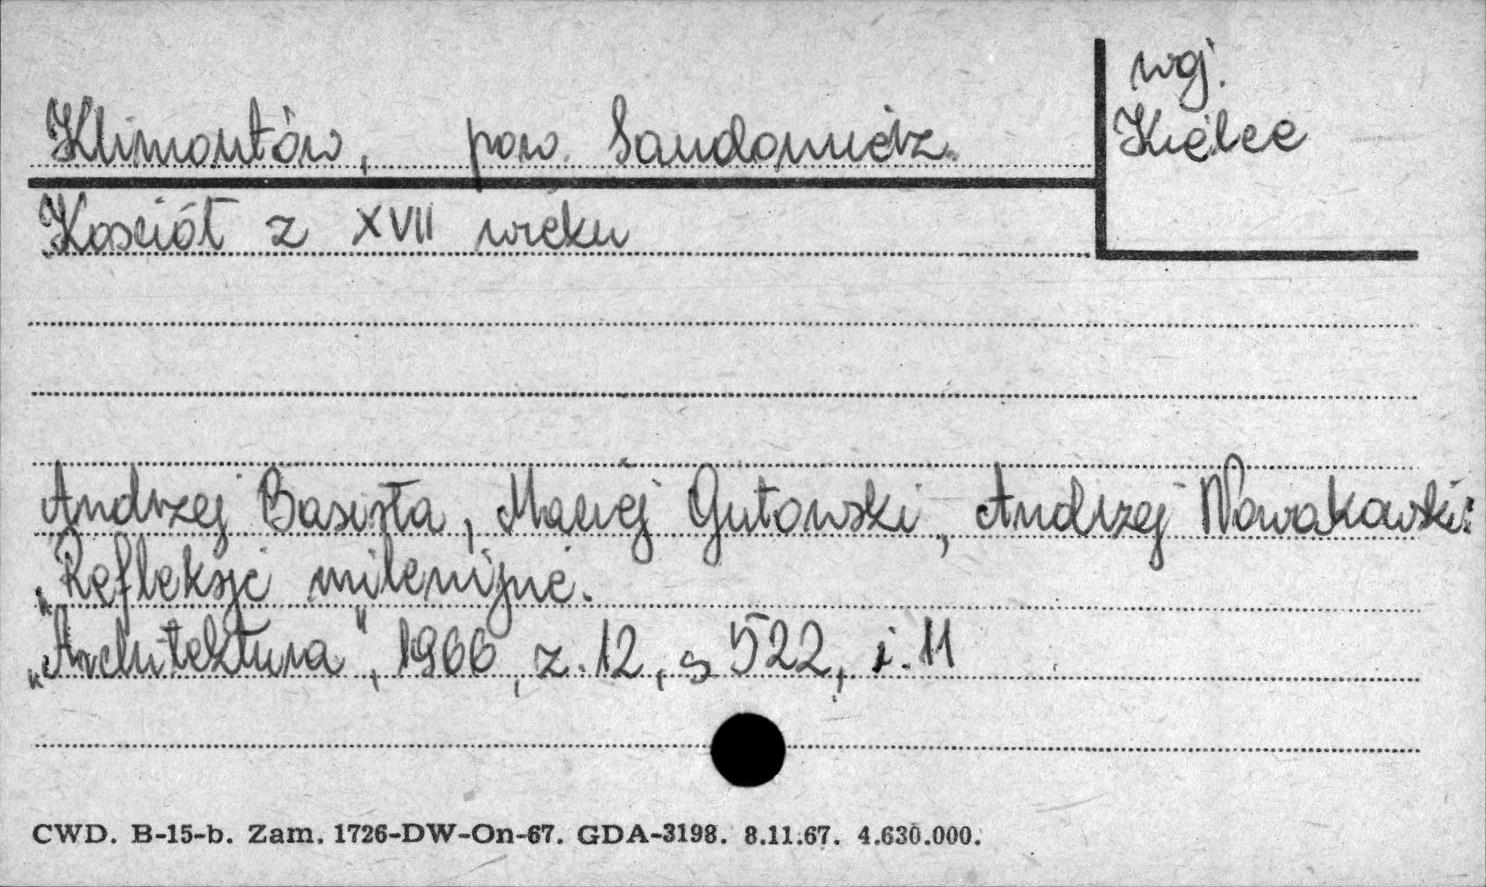 Klimontów, pow. Sandomierz
woj.
Kielce
Kościół z XVII wieku
Andrzej Basista, Maciej Gutowski, Andrzej Nowakowski:
„Refleksje milenijne.
„Architektura", 1966, z. 12, s 522, i. 11
CWD. B-15-b. Zam. 1726-DW-On-67. GDA-3198. 8.11.67. 4.630.000.